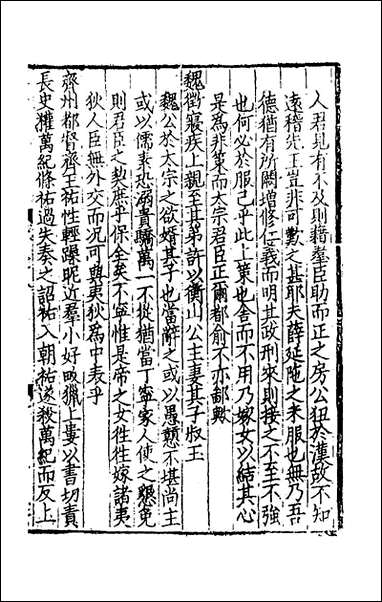 人君見有不及則藉羣臣助而正之房公狃於漢故不知
遠稽先王豈非可歎之甚耶夫薛延陁之来服也無乃吾
德猶有所闕增修仁義而明其政刑来則接之不至不強
也何必於服己乎此上策也舍而不用乃嫁女以結其心
是為非策而太宗君臣正爾都俞不亦鄙歟
魏徵寢疾上親至其弟許以衡山公主妻其子叔玉
魏公於太宗之欲婚其子也當辭之或以愚戇不堪尚主
或以儒素恐溺貴驕萬一不從猶當丁寧家人使之艱免
則君臣之契庶乎保全矣不寧惟是帝之女往往嫁諸夷
狄人臣無外交而况可與夷狄為中表乎
齊州都督齊王祐性輕躁昵近羣小好畋獵上婁以書切責
長史權萬紀條祐過失奏之詔祐入朝祐遂殺萬紀而反上